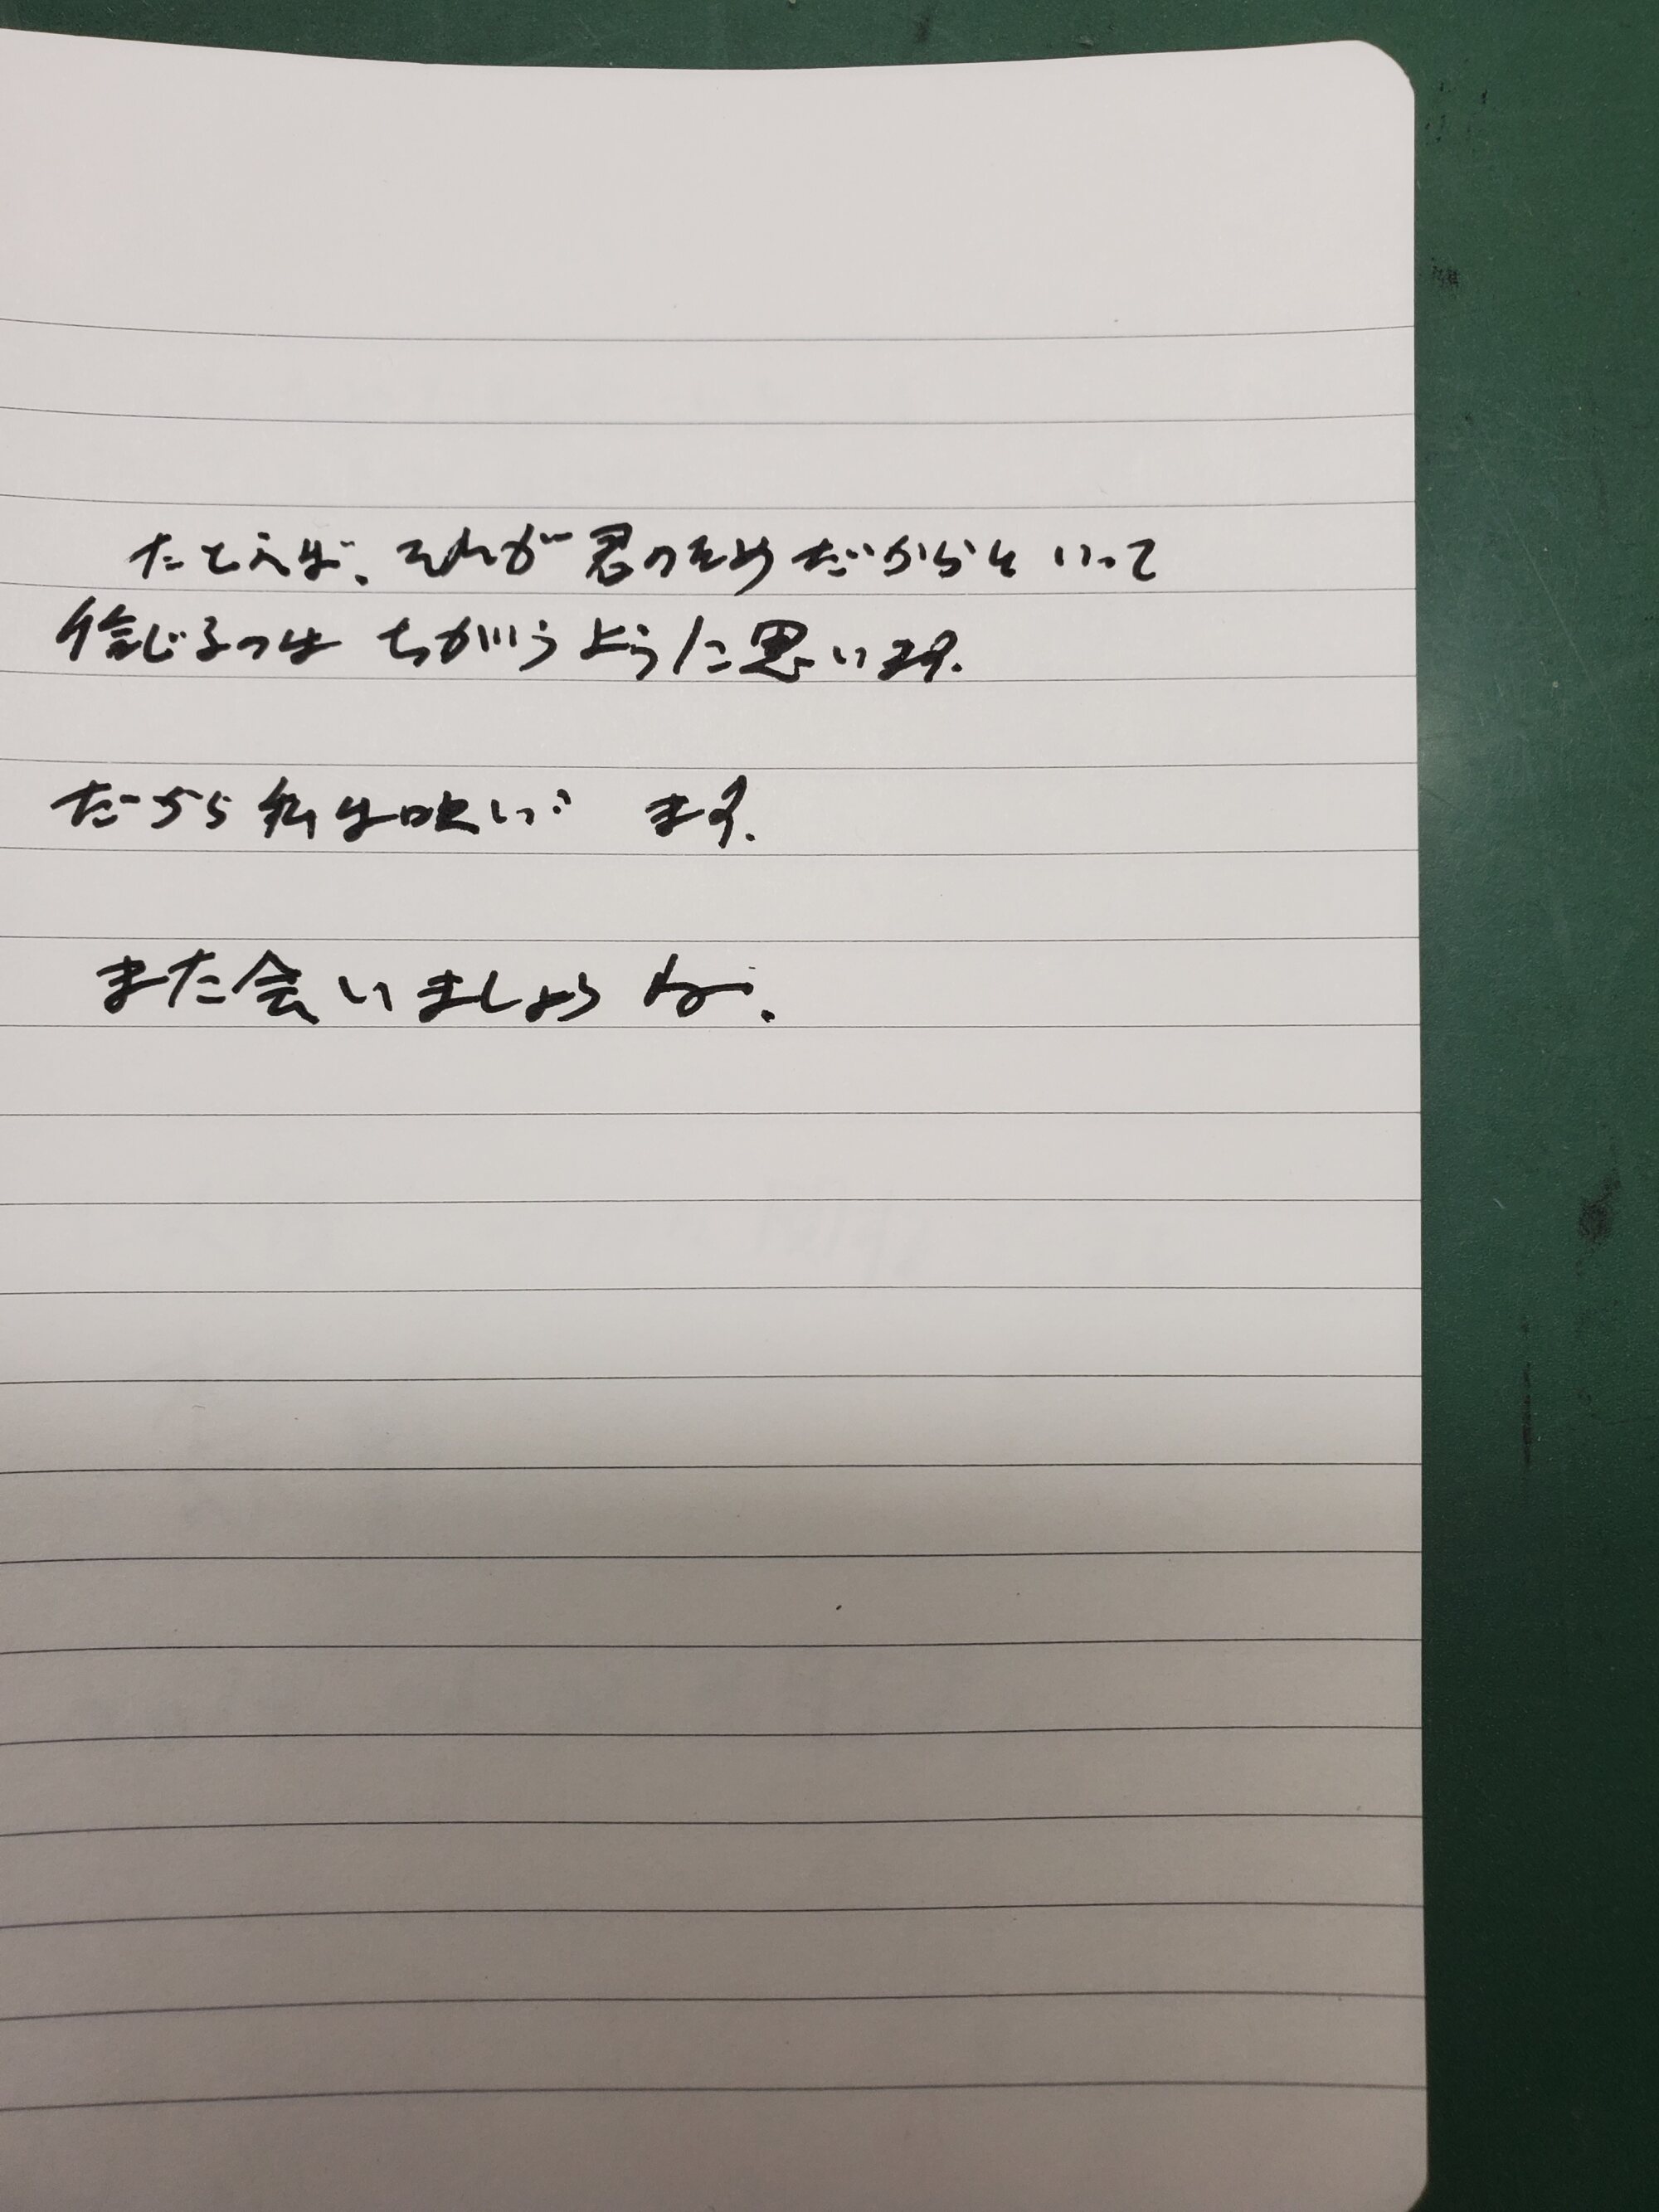 たとえば、それが君のためだからといって
信じるのはちがうように思います。
だから私は います。
また会いましょうね。